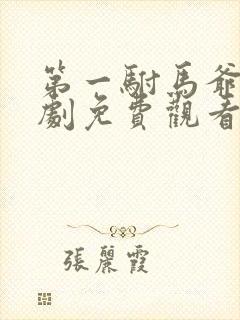 第一駙馬爺
劇免費觀看
張麗霞